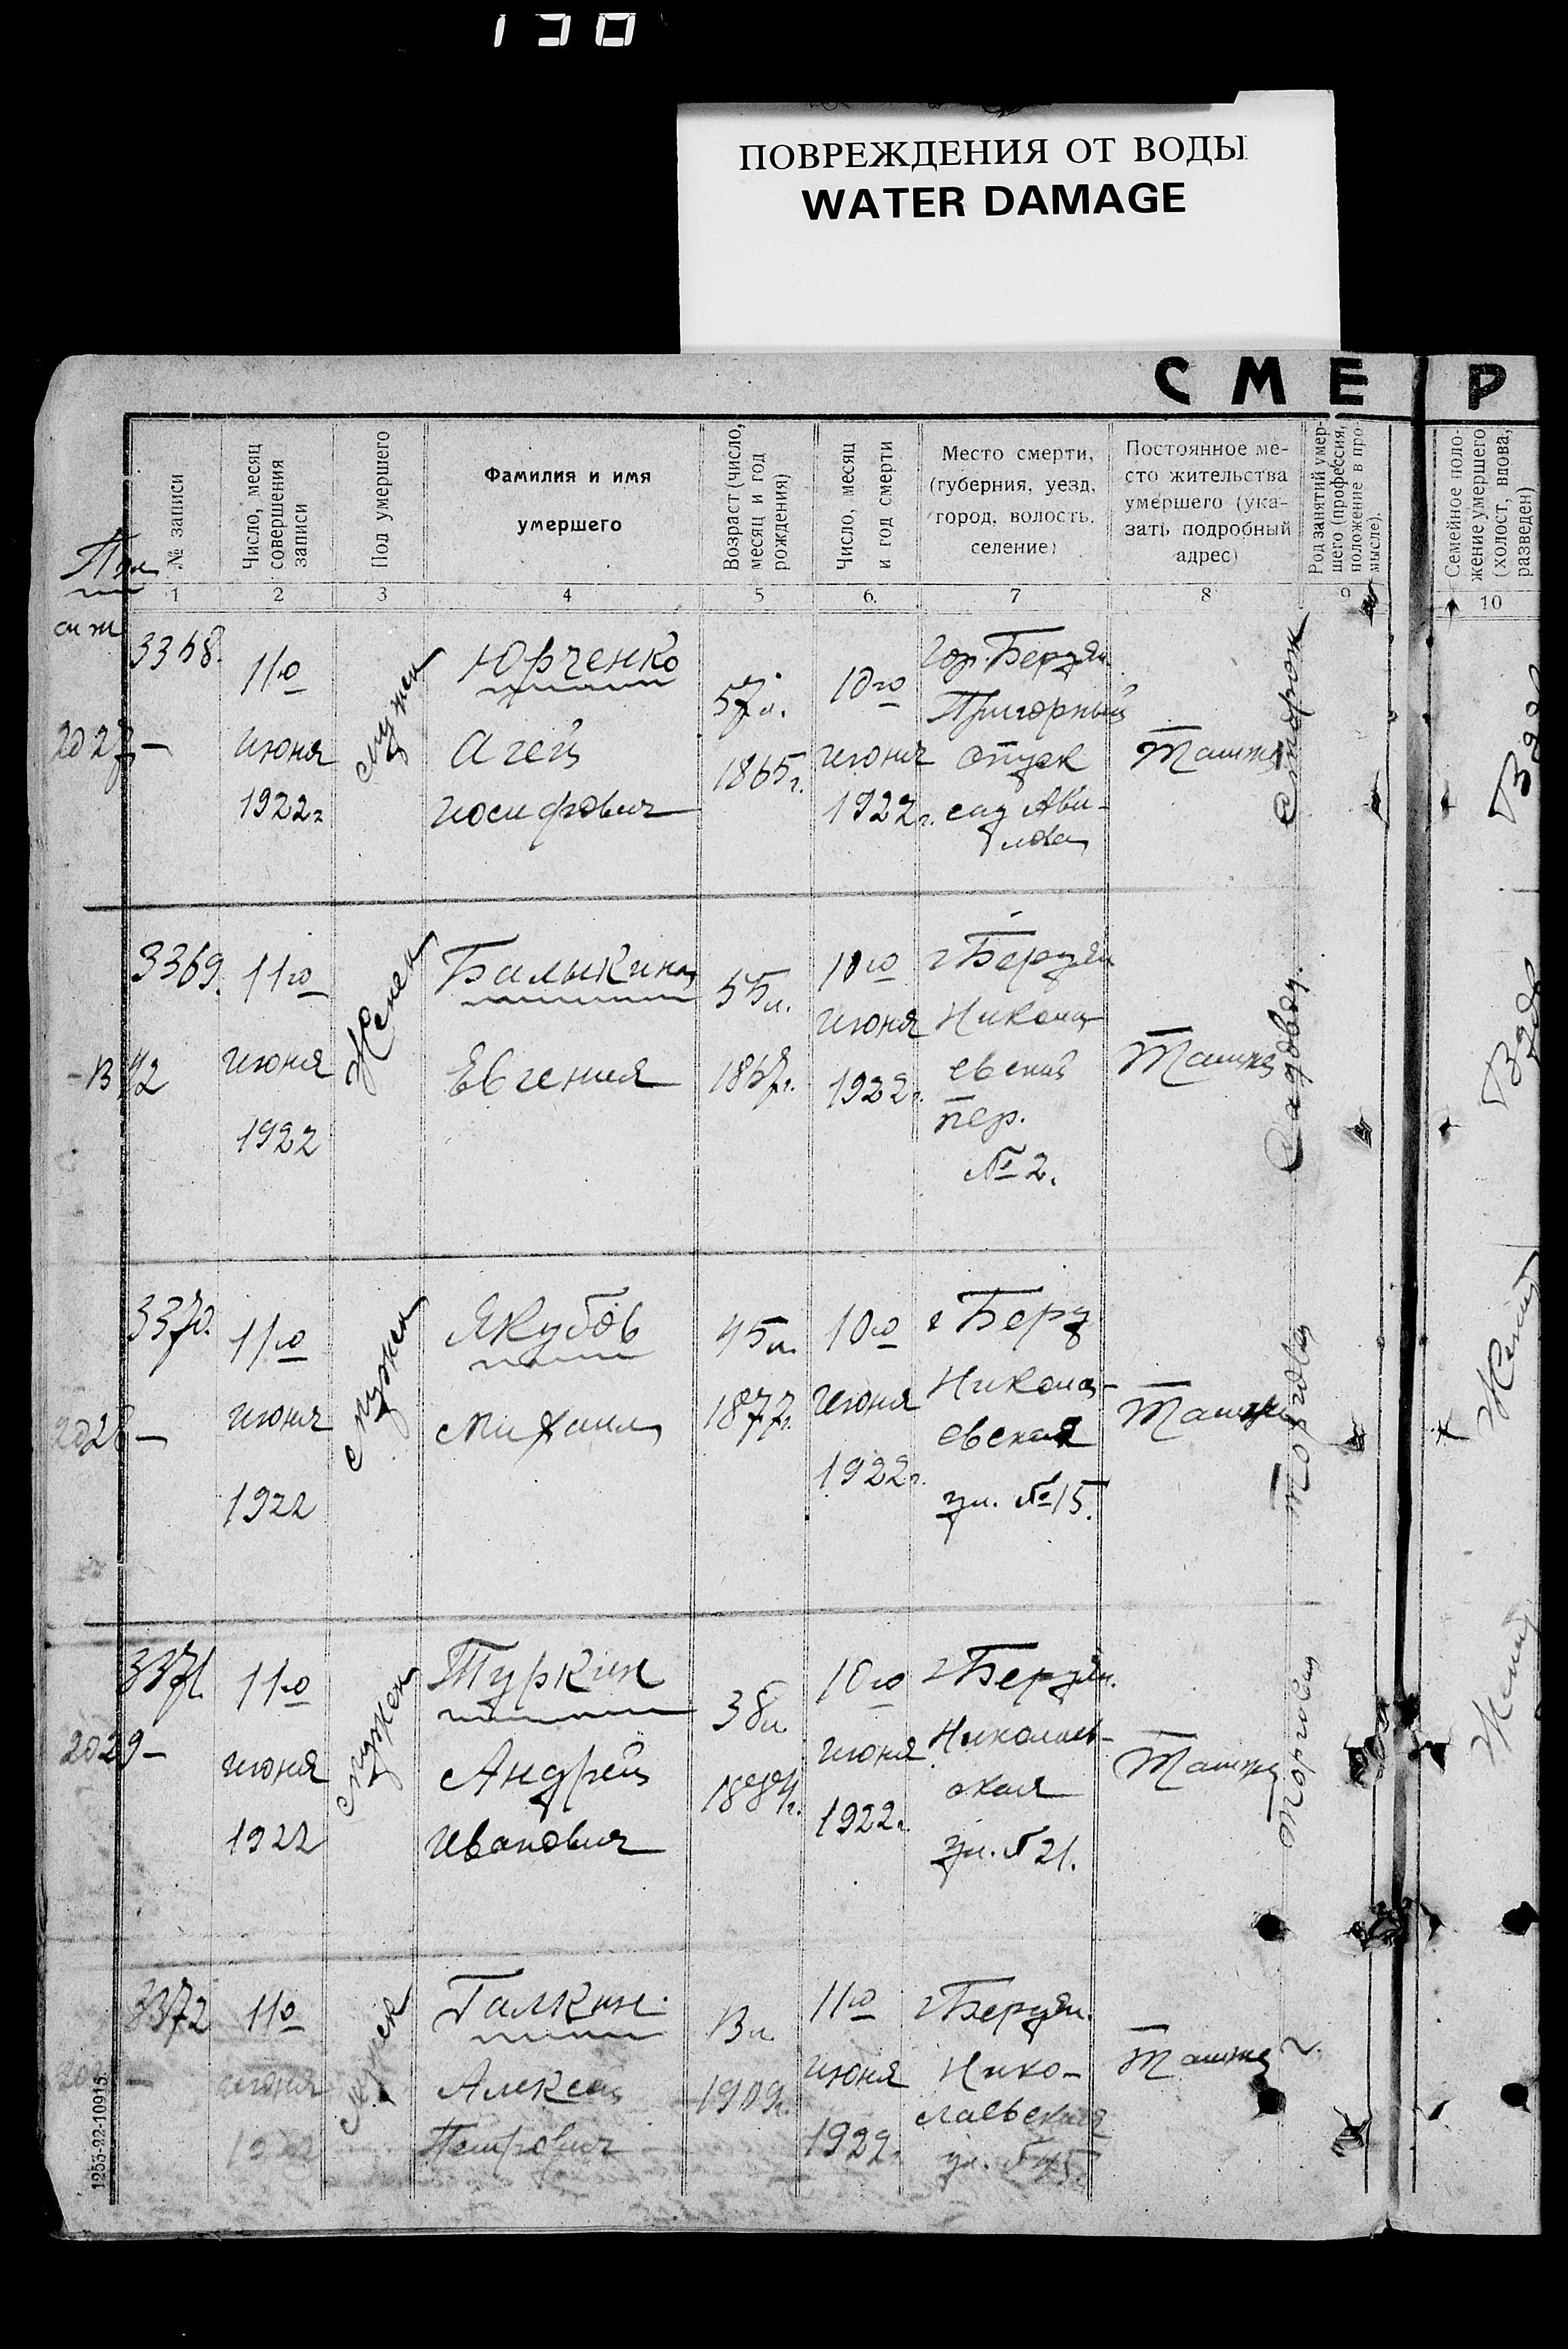 130
ПОВРЕЖДЕНИЯ ОТ ВОДЫ
WATER DAMAGE
СМЕ Р
№ записи
Число, месяц совершения записи
Пол умершего
Фамилия и имя умершего
Возраст (число, месяц и год рождения)
Число, месяц и год смерти
Место смерти, (губерния, уезд, город, волость, селение)
Постоянное ме-
сто жительства
умершего (ука-
зать подробный
адрес)
Род занятий умер-
шего (профессия,
положение в про-
мысле).
Семейное поло-
жение умершего
(холост, вдова,
разведен)
1 2 3 4 5 6. 7 8 9 10
3368.
2027 —
11го
июня
1922г
мужск
Юрченко
Агей
Иосифович
57л.
1865г.
10го
июня
1922г.
Гор. Бердян
Пригорный
спуск
сад Ави-
лова
Тамже
Сторож
3369.
11го
июня
1922
Женск
Балыкина
Евгения
55л.
1867г.
10го
июня
1922г.
г Бердян
Никола-
евский
пер.
№ 2.
Тамже
Садовод.
3370.
2028 —
11го
июня
1922
мужск
Якубов
Михаил
45л.
1877г.
10го
июня
1922г.
г Берд
Никола-
евская
ул. №15.
Тамже
Торговец
Женат
3371.
2029 —
11го
июня
1922
мужск
Туркин
Андрей
Иванович
38л.
1884г.
10го
июня
1922г.
г Бердян.
Николаев-
ская
ул. № 21.
Тамже
Торговец
Женат
3372
11го
июня
1922
мужск
Галкин
Алексей
Петрович
13л.
1909г.
11го
июня
1922г.
г Бердян.
Нико-
лаевская
ул. № 45.
Тамже
1253-22-10915.